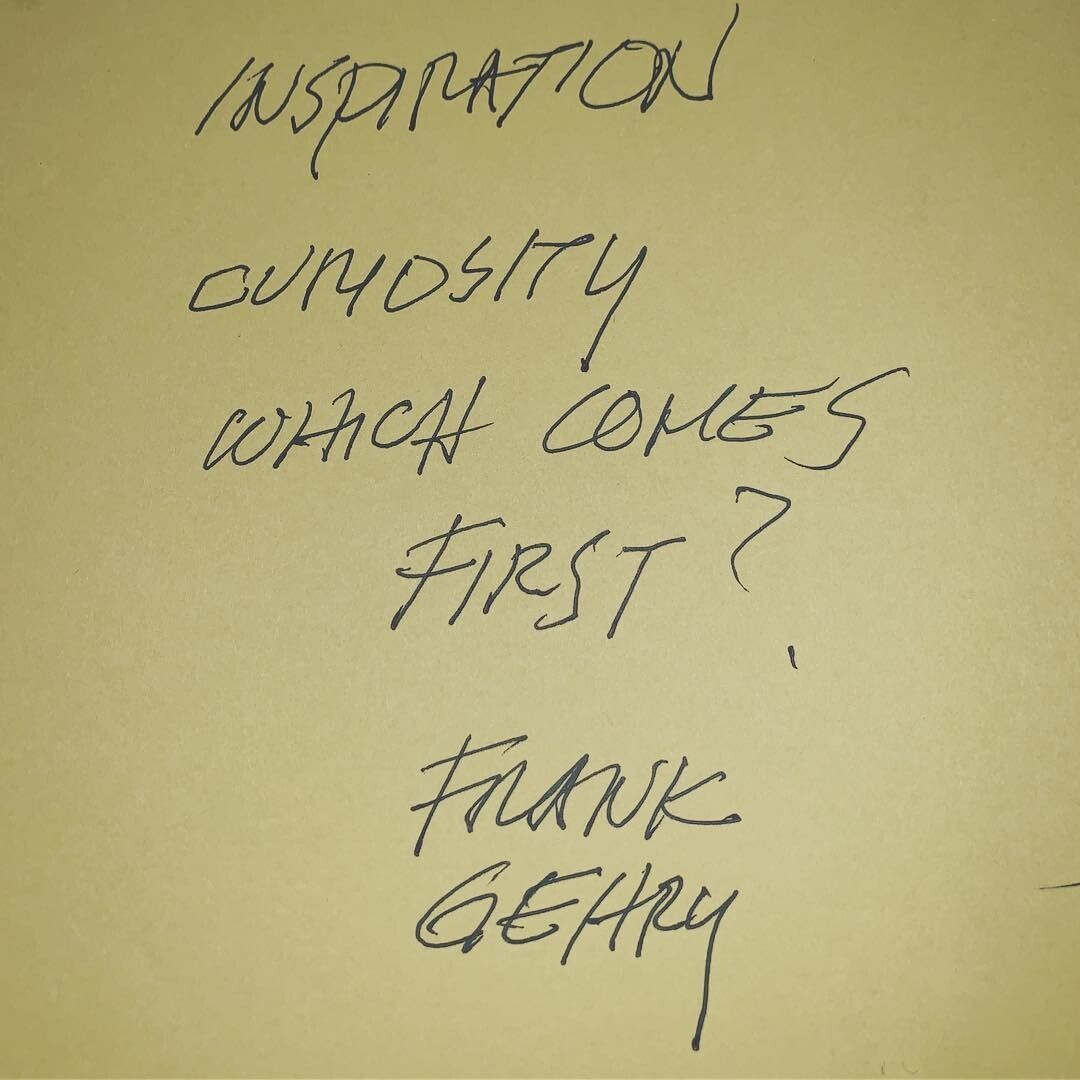 INSPIRATION
CURIOSITY
WHICH COMES
FIRST?
FRANK
GEHRY